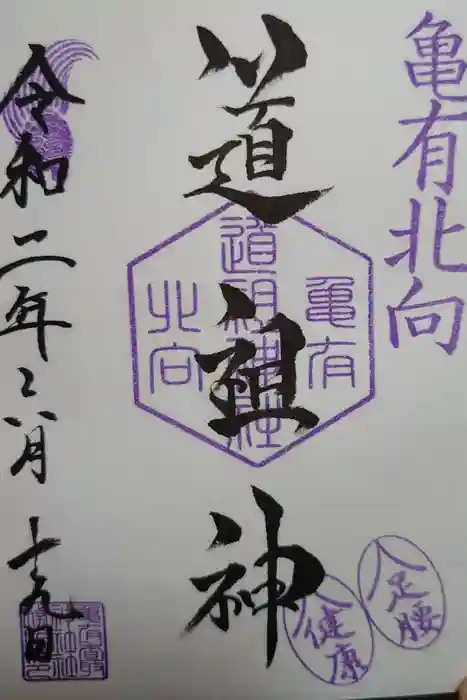 亀有北向
道祖神
亀有
道祖神社
北向
足腰
健康
令和二年八月十九日